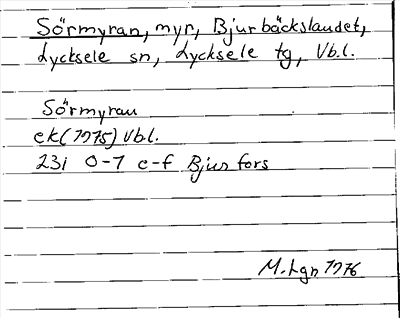 Sörmyran, myr, Bjurbäckslandet,
Lycksele sn, Lycksele tg, Vb.l.
Sörmyran
ek (1975) Vbl.
23i 0-1 e-f Bjurfors
M. Lgn 1976